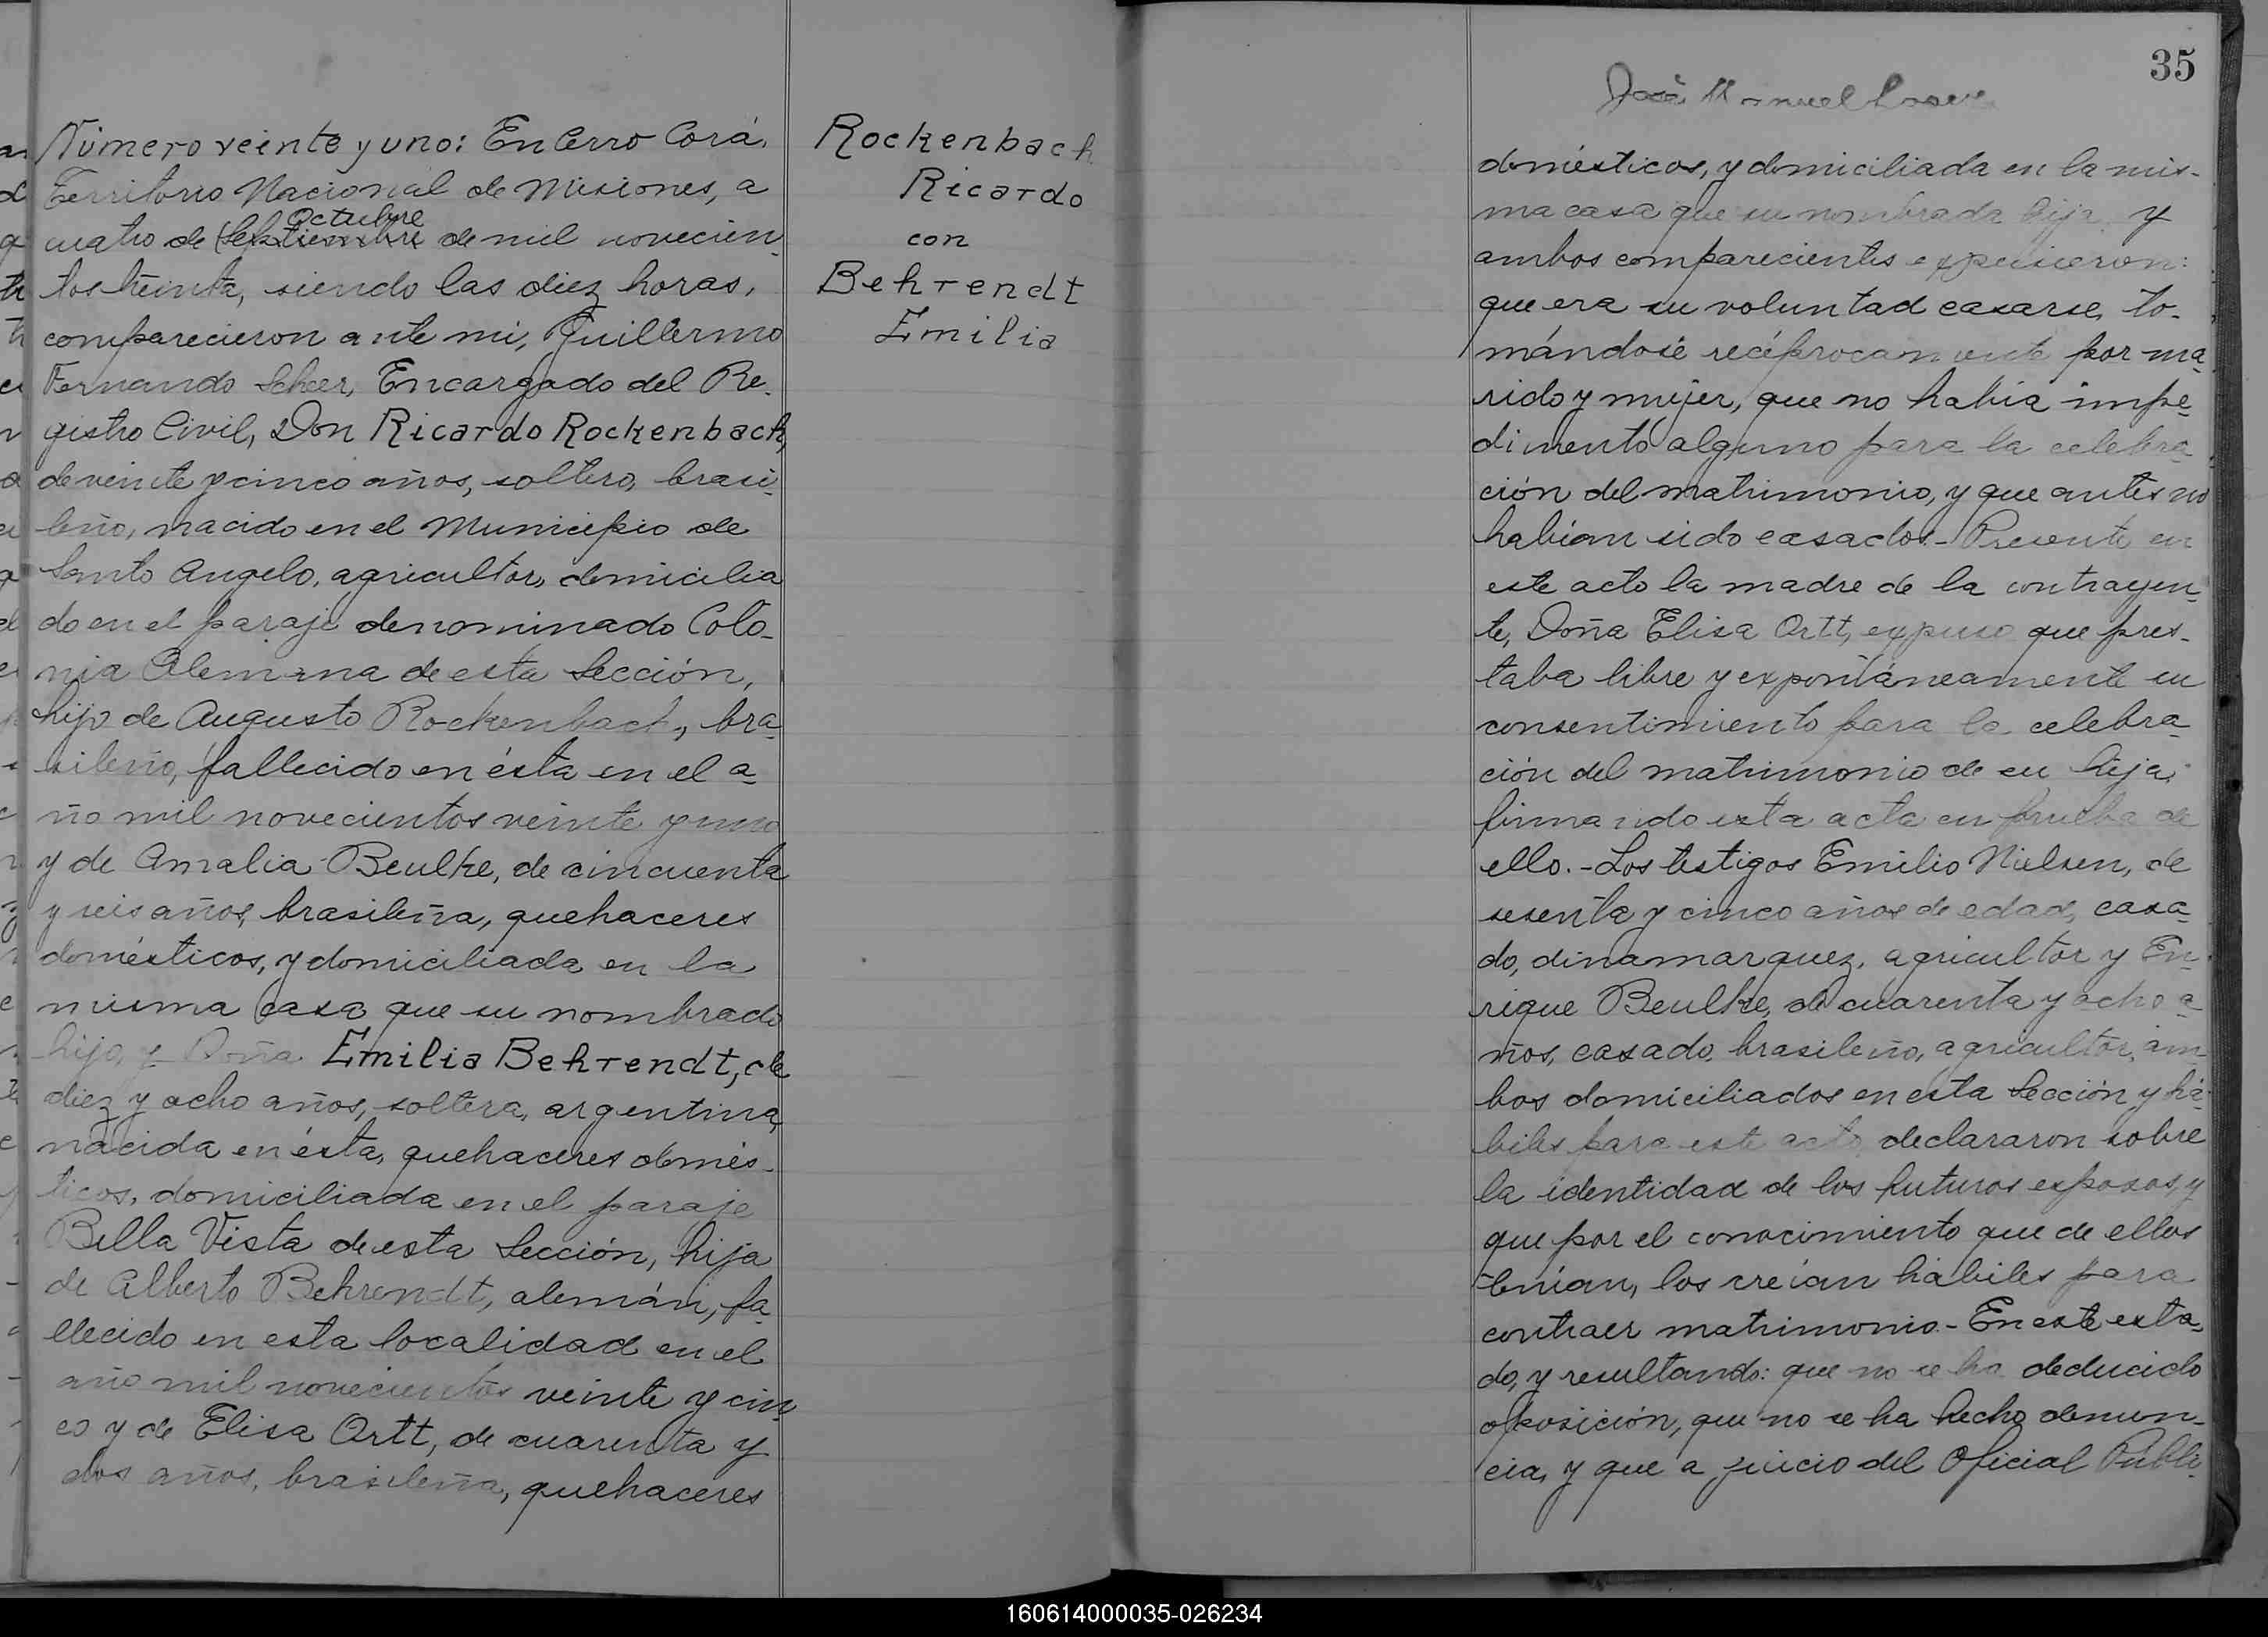 Número veinte y uno: En Cerro Corá,
Territorio Nacional de Misiones, a
Octubre
cuatro de (Septiembre de mil novecien-
tos treinta, siendo las diez horas,
comparecieron ante mi, Guillermo
Fernando Scheer, Encargado del Re-
gistro Civil, Don Ricardo Rockenbach,
de veinte y cinco años, soltero, brasi-
leño, nacido en el Municipio de
Santo Angelo, agricultor, domicilia
do en el paraje denominado Colo-
nia Alemana de esta Sección,
hijo de Augusto Rockenbach, bra-
sileño, fallecido en ésta en el a-
ño mil novecientos veinte y uno
y de Amalia Beulke, de cincuenta
y seis años, brasileña, quehaceres
domésticos, y domiciliada en la
misma casa que su nombrado
hijo, y Doña Emilia Behrendt, de
diez y ocho años, soltera, argentina,
nacida en ésta, quehaceres domés-
ticos, domiciliada en el paraje
Bella Vista de esta Sección, hija
de Alberto Behrendt, alemán, fa-
llecido en esta localidad en el
año mil novecientos veinte y cin-
co y de Elisa Ortt, de cuarenta y
dos años, brasileña, quehaceres
Rockenbach
Ricardo
con
Behrendt
Emilia
35
José Manuel
domésticos, y domiciliada en la mis-
ma casa que su nombrada hija, y
ambos comparecientes expusieron:
que era su voluntad casarse, to-
mándose recíprocamente por ma-
rido y mujer, que no había impe-
dimento alguno para la celebra-
ción del matrimonio, y que antes no
habían sido casados.- Presente en
este acto la madre de la contrayen-
te, Doña Elisa Ortt, expuso que pres-
taba libre y expontáneamente su
consentimiento para la celebra-
ción del matrimonio de su hija,
firmando esta acta en prueba de
ello.- Los testigos Emilio Nielsen, de
sesenta y cinco años de edad, casa-
do, dinamarquez, agricultor y En-
rique Beulke, de cuarenta y ocho a-
ños, casado, brasileño, agricultor, am-
bos domiciliados en esta Sección y há-
biles para este acto, declararon sobre
la identidad de los futuros esposos, y
que por el conocimiento que de ellos
tenían, los creían hábiles para
contraer matrimonio.- En este esta-
do, y resultando: que no se ha deducido
oposición, que no se ha hecho denun-
cia, y que a juicio del Oficial Públi-
160614000035-026234